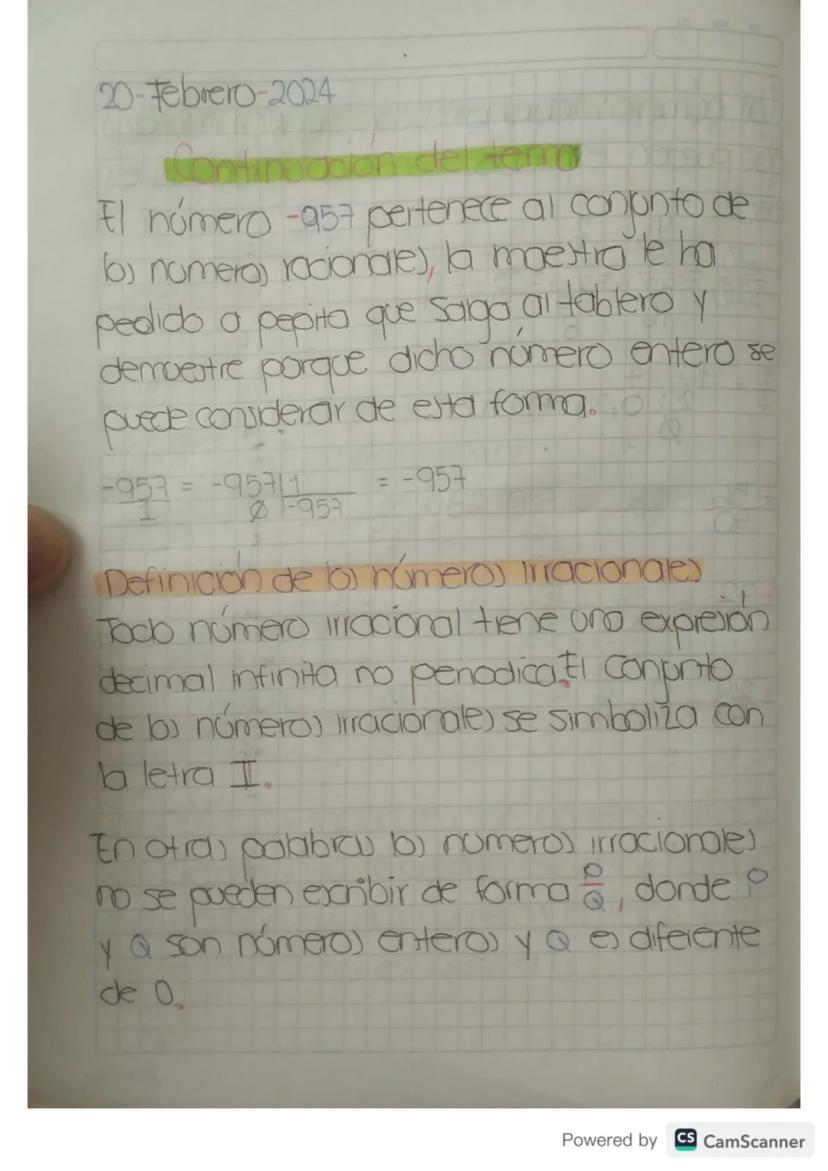 20-Febrero-2024
Continuación del tema
El número -957 pertenece al conjunto de
los numeros racionales, la maestra le ha
pedido a pepito que salga al tablero y
demuestre porque dicho número entero se
puede considerar de esta forma.
-957 = -957|1 = -957
1 0 -957
Definición de los números irracionales
Todo número irracional tiene una expresión
decimal infinita no periodica. El conjunto
de los números irracionales se simboliza con
la letra II.
En otras palabras los numeros irracionales
no se pueden escribir de forma P/Q, donde P
y Q son números enteros y Q es diferente
de 0.
Powered by CS CamScanner